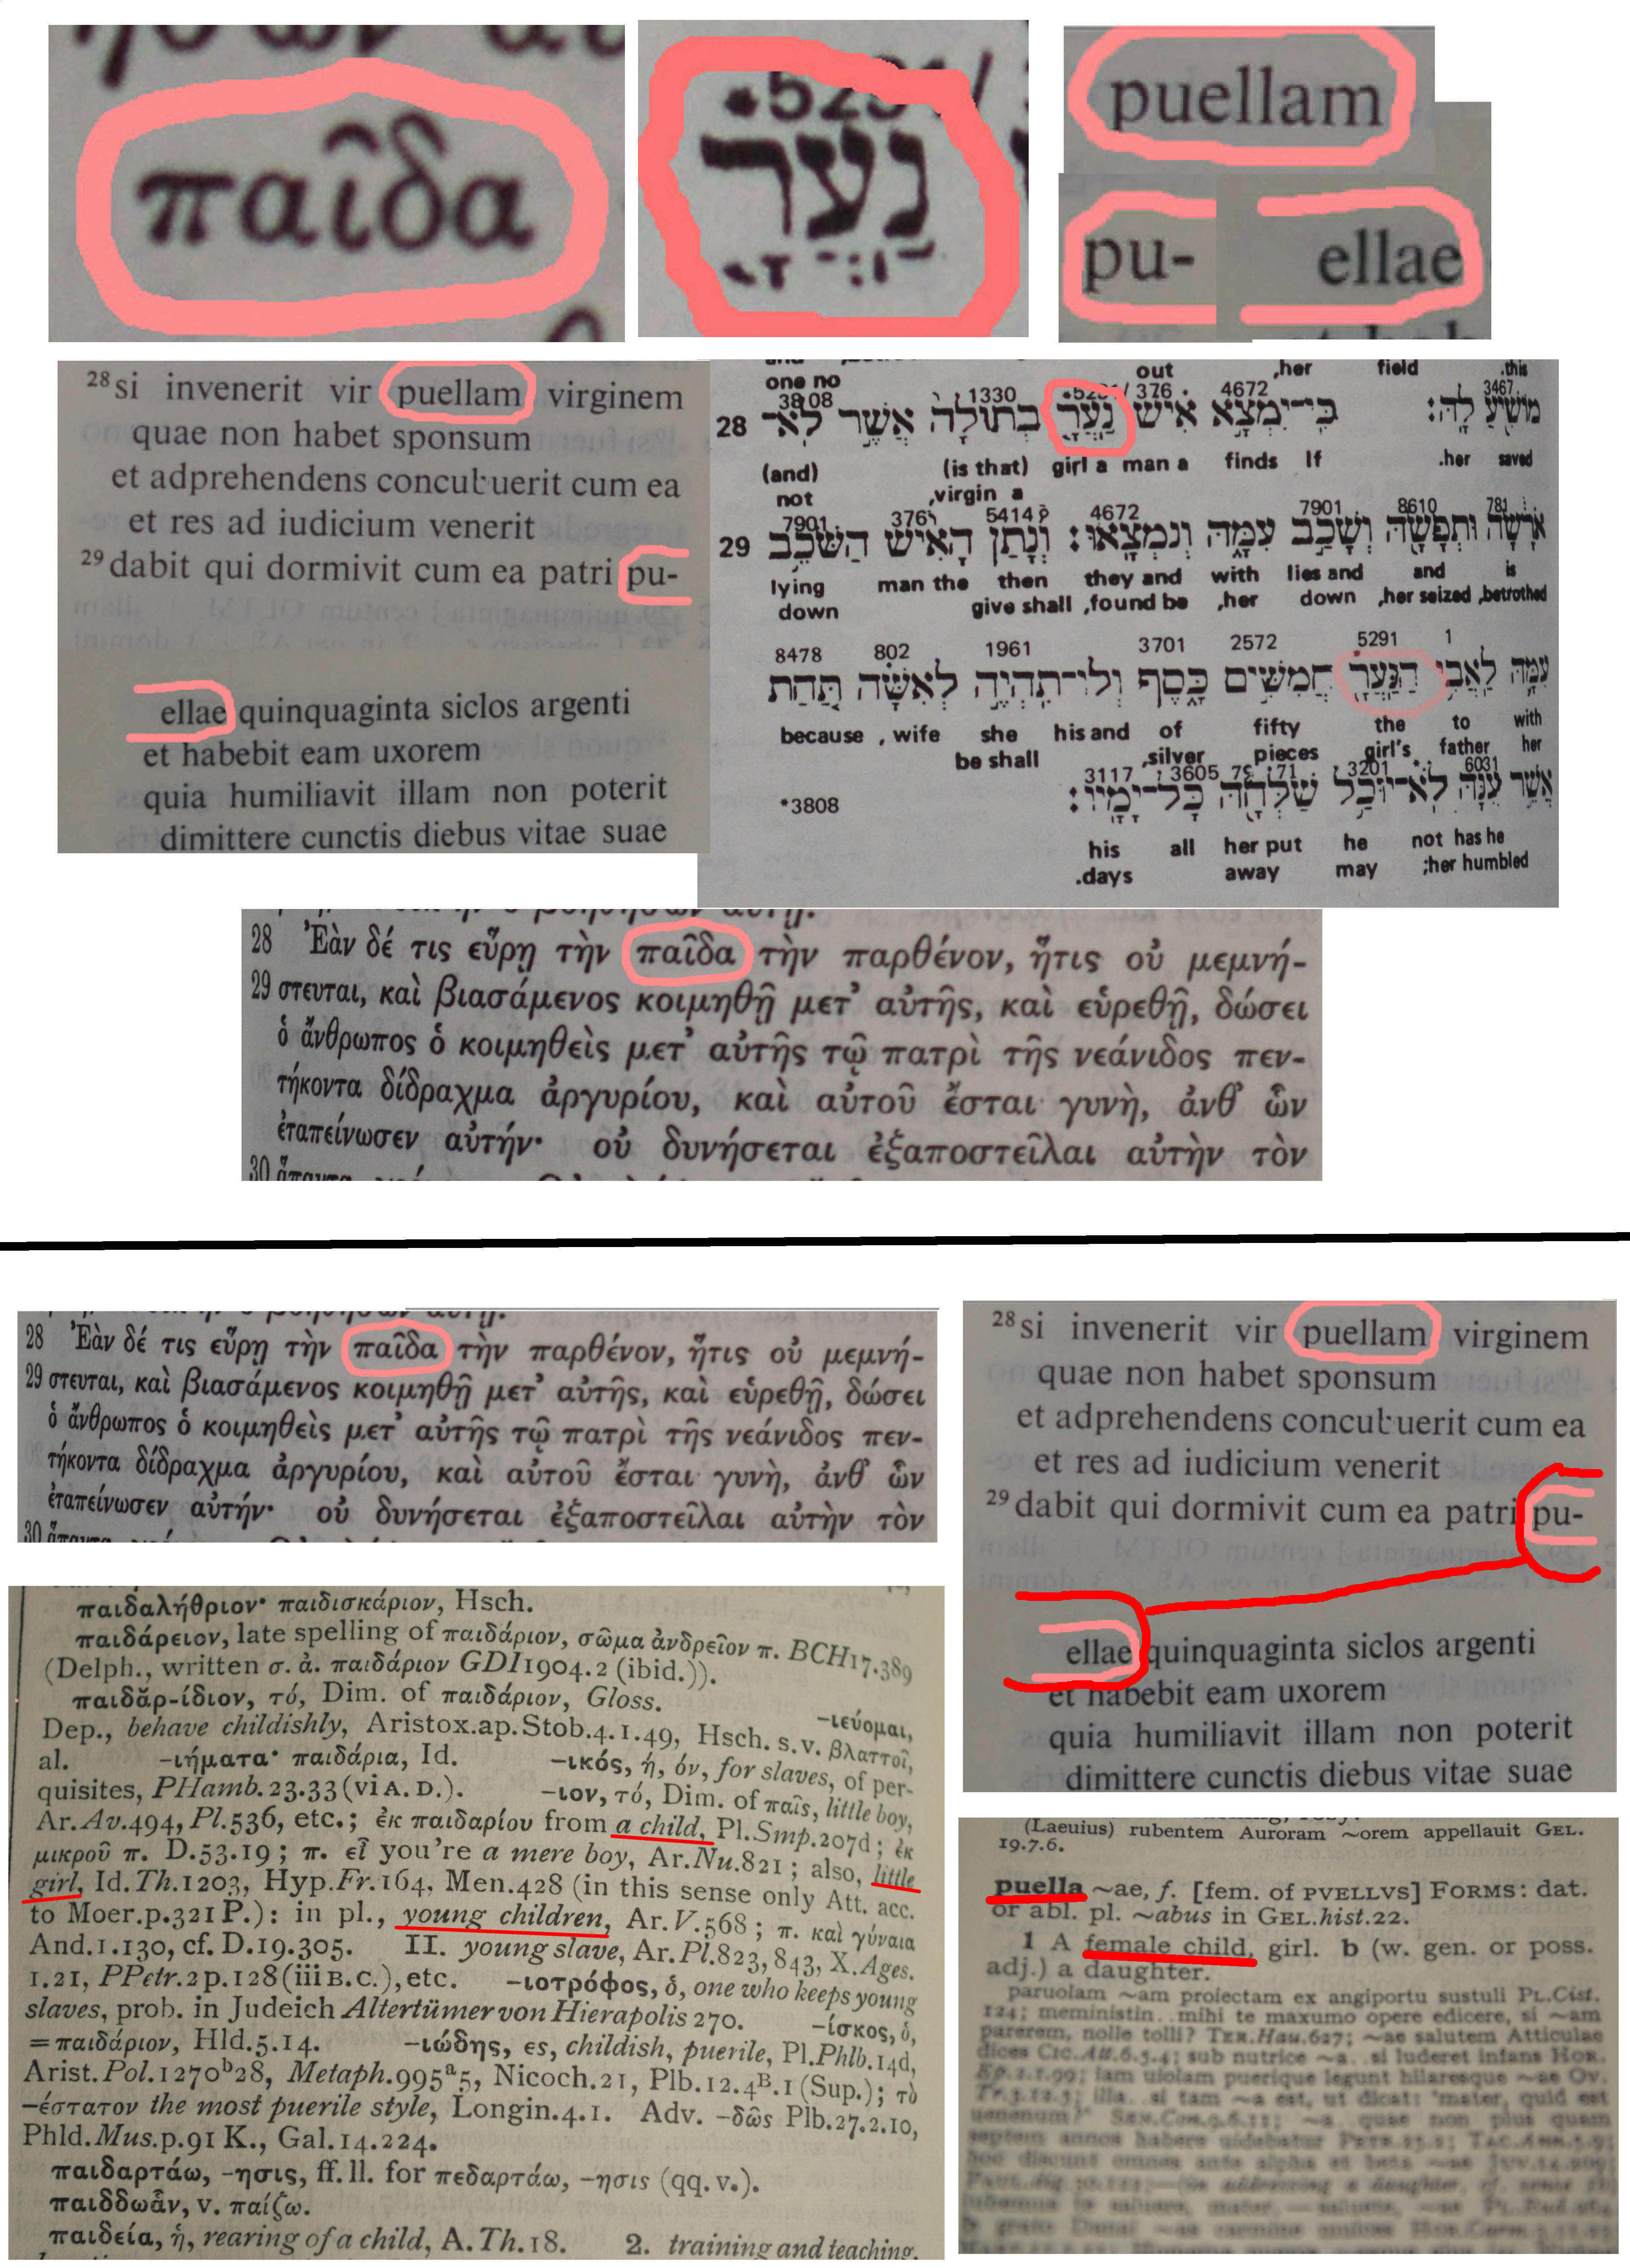 παῖδα
נַעֲרָ
puellam
pu- ellae
28 si invenerit vir puellam virginem
quae non habet sponsum
et adprehendens concubuerit cum ea
et res ad iudicium venerit
29 dabit qui dormivit cum ea patri pu-
ellae quinquaginta siclos argenti
et habebit eam uxorem
quia humiliavit illam non poterit
dimittere cunctis diebus vitae suae
one no out ,her field .this
3808 1330 376 4672 3467
28 מוֹשִׁיעַ לָהּ: כִּי־יִמְצָא אִישׁ נַעֲרָ בְתוּלָה אֲשֶׁר לֹא־
(and) (is that) girl a man a finds If .her saved
not ,virgin a
7901 376 5414 4672 7901 8610 781
29 אֹרָשָׂה וּתְפָשָׂהּ וְשָׁכַב עִמָּהּ וְנִמְצָאוּ: וְנָתַן הָאִישׁ הַשֹּׁכֵב
lying man the then they and with lies and and is
down give shall ,found be ,her down ,her seized ,betrothed
8478 802 1961 3701 2572 5291 1
עִמָּהּ לַאֲבִי הַנַּעֲרָ חֲמִשִּׁים כָּסֶף וְלוֹ־תִהְיֶה לְאִשָּׁה תַּחַת
because , wife she his and of fifty the to with
be shall ,silver pieces girl's father her
3117 3605 71 3201 6031
אֲשֶׁר עִנָּהּ לֹא־יוּכַל שַׁלְּחָהּ כָּל־יָמָיו:
*3808
his all her put he not has he
.days away may ;her humbled
28 Ἐὰν δέ τις εὕρῃ τὴν παῖδα τὴν παρθένον, ἥτις οὐ μεμνή-
29 στευται, καὶ βιασάμενος κοιμηθῇ μετ᾽ αὐτῆς, καὶ εὑρεθῇ, δώσει
ὁ ἄνθρωπος ὁ κοιμηθεὶς μετ᾽ αὐτῆς τῷ πατρὶ τῆς νεάνιδος πεν-
τήκοντα δίδραχμα ἀργυρίου, καὶ αὐτοῦ ἔσται γυνὴ, ἀνθ᾽ ὧν
ἐταπείνωσεν αὐτήν· οὐ δυνήσεται ἐξαποστεῖλαι αὐτὴν τὸν
30
28 Ἐὰν δέ τις εὕρῃ τὴν παῖδα τὴν παρθένον, ἥτις οὐ μεμνή-
29 στευται, καὶ βιασάμενος κοιμηθῇ μετ᾽ αὐτῆς, καὶ εὑρεθῇ, δώσει
ὁ ἄνθρωπος ὁ κοιμηθεὶς μετ᾽ αὐτῆς τῷ πατρὶ τῆς νεάνιδος πεν-
τήκοντα δίδραχμα ἀργυρίου, καὶ αὐτοῦ ἔσται γυνὴ, ἀνθ᾽ ὧν
ἐταπείνωσεν αὐτήν· οὐ δυνήσεται ἐξαποστεῖλαι αὐτὴν τὸν
30
παιδαλήθριον· παιδισκάριον, Hsch.
παιδάρειον, late spelling of παιδάριον, σῶμα ἀνδρεῖον π. BCH17.389
(Delph., written σ. ἀ. παιδάριον GDI1904.2 (ibid.)).
παιδᾰρ-ίδιον, τό, Dim. of παιδάριον, Gloss. -ιεύομαι,
Dep., behave childishly, Aristox.ap.Stob.4.1.49, Hsch. s.v. βλαττοῖ,
al. -ιήματα· παιδάρια, Id. -ικός, ή, όν, for slaves, of per-
quisites, PHamb.23.33 (vi A. D.). -ιον, τό, Dim. of παῖς, little boy,
Ar.Av.494, Pl.536, etc.; ἐκ παιδαρίου from a child, Pl.Smp.207d; ἐκ
μικροῦ π. D.53.19; π. εἶ you're a mere boy, Ar.Nu.821; also, little
girl, Id.Th.1203, Hyp.Fr.164, Men.428 (in this sense only Att. acc.
to Moer.p.321 P.): in pl., young children, Ar.V.568; π. καὶ γύναια
And.1.130, cf. D.19.305. II. young slave, Ar.Pl.823, 843, X.Ages.
1.21, PPetr.2p.128 (iii B.C.), etc. -ιοτρόφος, ὁ, one who keeps young
slaves, prob. in Judeich Altertümer von Hierapolis 270. -ίσκος, ὁ,
=παιδάριον, Hld.5.14. -ιώδης, ες, childish, puerile, Pl.Phlb.14d,
Arist.Pol.1270ᵇ28, Metaph.995ᵃ5, Nicoch.21, Plb.12.4ᴮ.1 (Sup.); τὸ
-έστατον the most puerile style, Longin.4.1. Adv. -δῶς Plb.27.2.10,
Phld.Mus.p.91 K., Gal.14.224.
παιδαρτάω, -ησις, ff. ll. for πεδαρτάω, -ησις (qq. v.).
παιδδωἇν, v. παίζω.
παιδεία, ἡ, rearing of a child, A.Th.18. 2. training and teaching,
28 si invenerit vir puellam virginem
quae non habet sponsum
et adprehendens concubuerit cum ea
et res ad iudicium venerit
29 dabit qui dormivit cum ea patri pu-
ellae quinquaginta siclos argenti
et habebit eam uxorem
quia humiliavit illam non poterit
dimittere cunctis diebus vitae suae
(Laeuius) rubentem Auroram ~orem appellauit GEL.
19.7.6.
puella ~ae, f. [fem. of PVELLVS] FORMS: dat.
or abl. pl. ~abus in GEL.hist.22.
1 A female child, girl. b (w. gen. or poss.
adj.) a daughter.
paruolam ~am proiectam ex angiportu sustuli PL.Cist.
124; meministin.. mihi te maxumo opere edicere, si ~am
parerem, nolle tolli? TER.Hau.627; ~ae salutem Atticulae
dices CIC.Att.6.5.4; sub nutrice ~a. si luderet infans HOR.